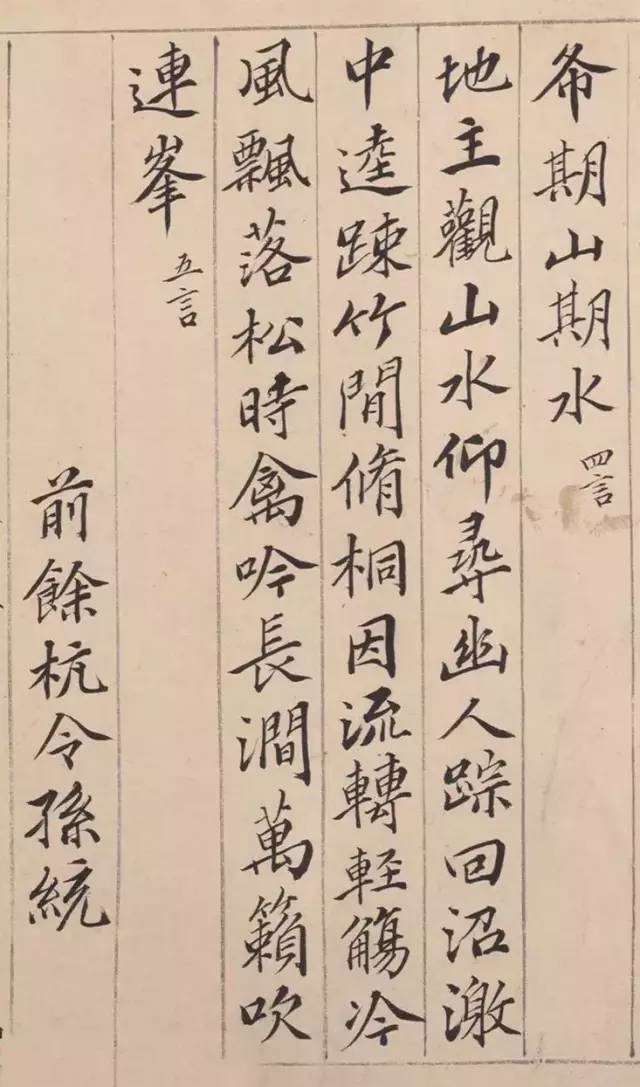 希期山期水 四言
地主觀山水仰尋幽人踪回沼激
中逵踈竹間脩桐因流轉輕觴冷
風飄落松時禽吟長澗萬籟吹
連峯 五言
前餘杭令孫統